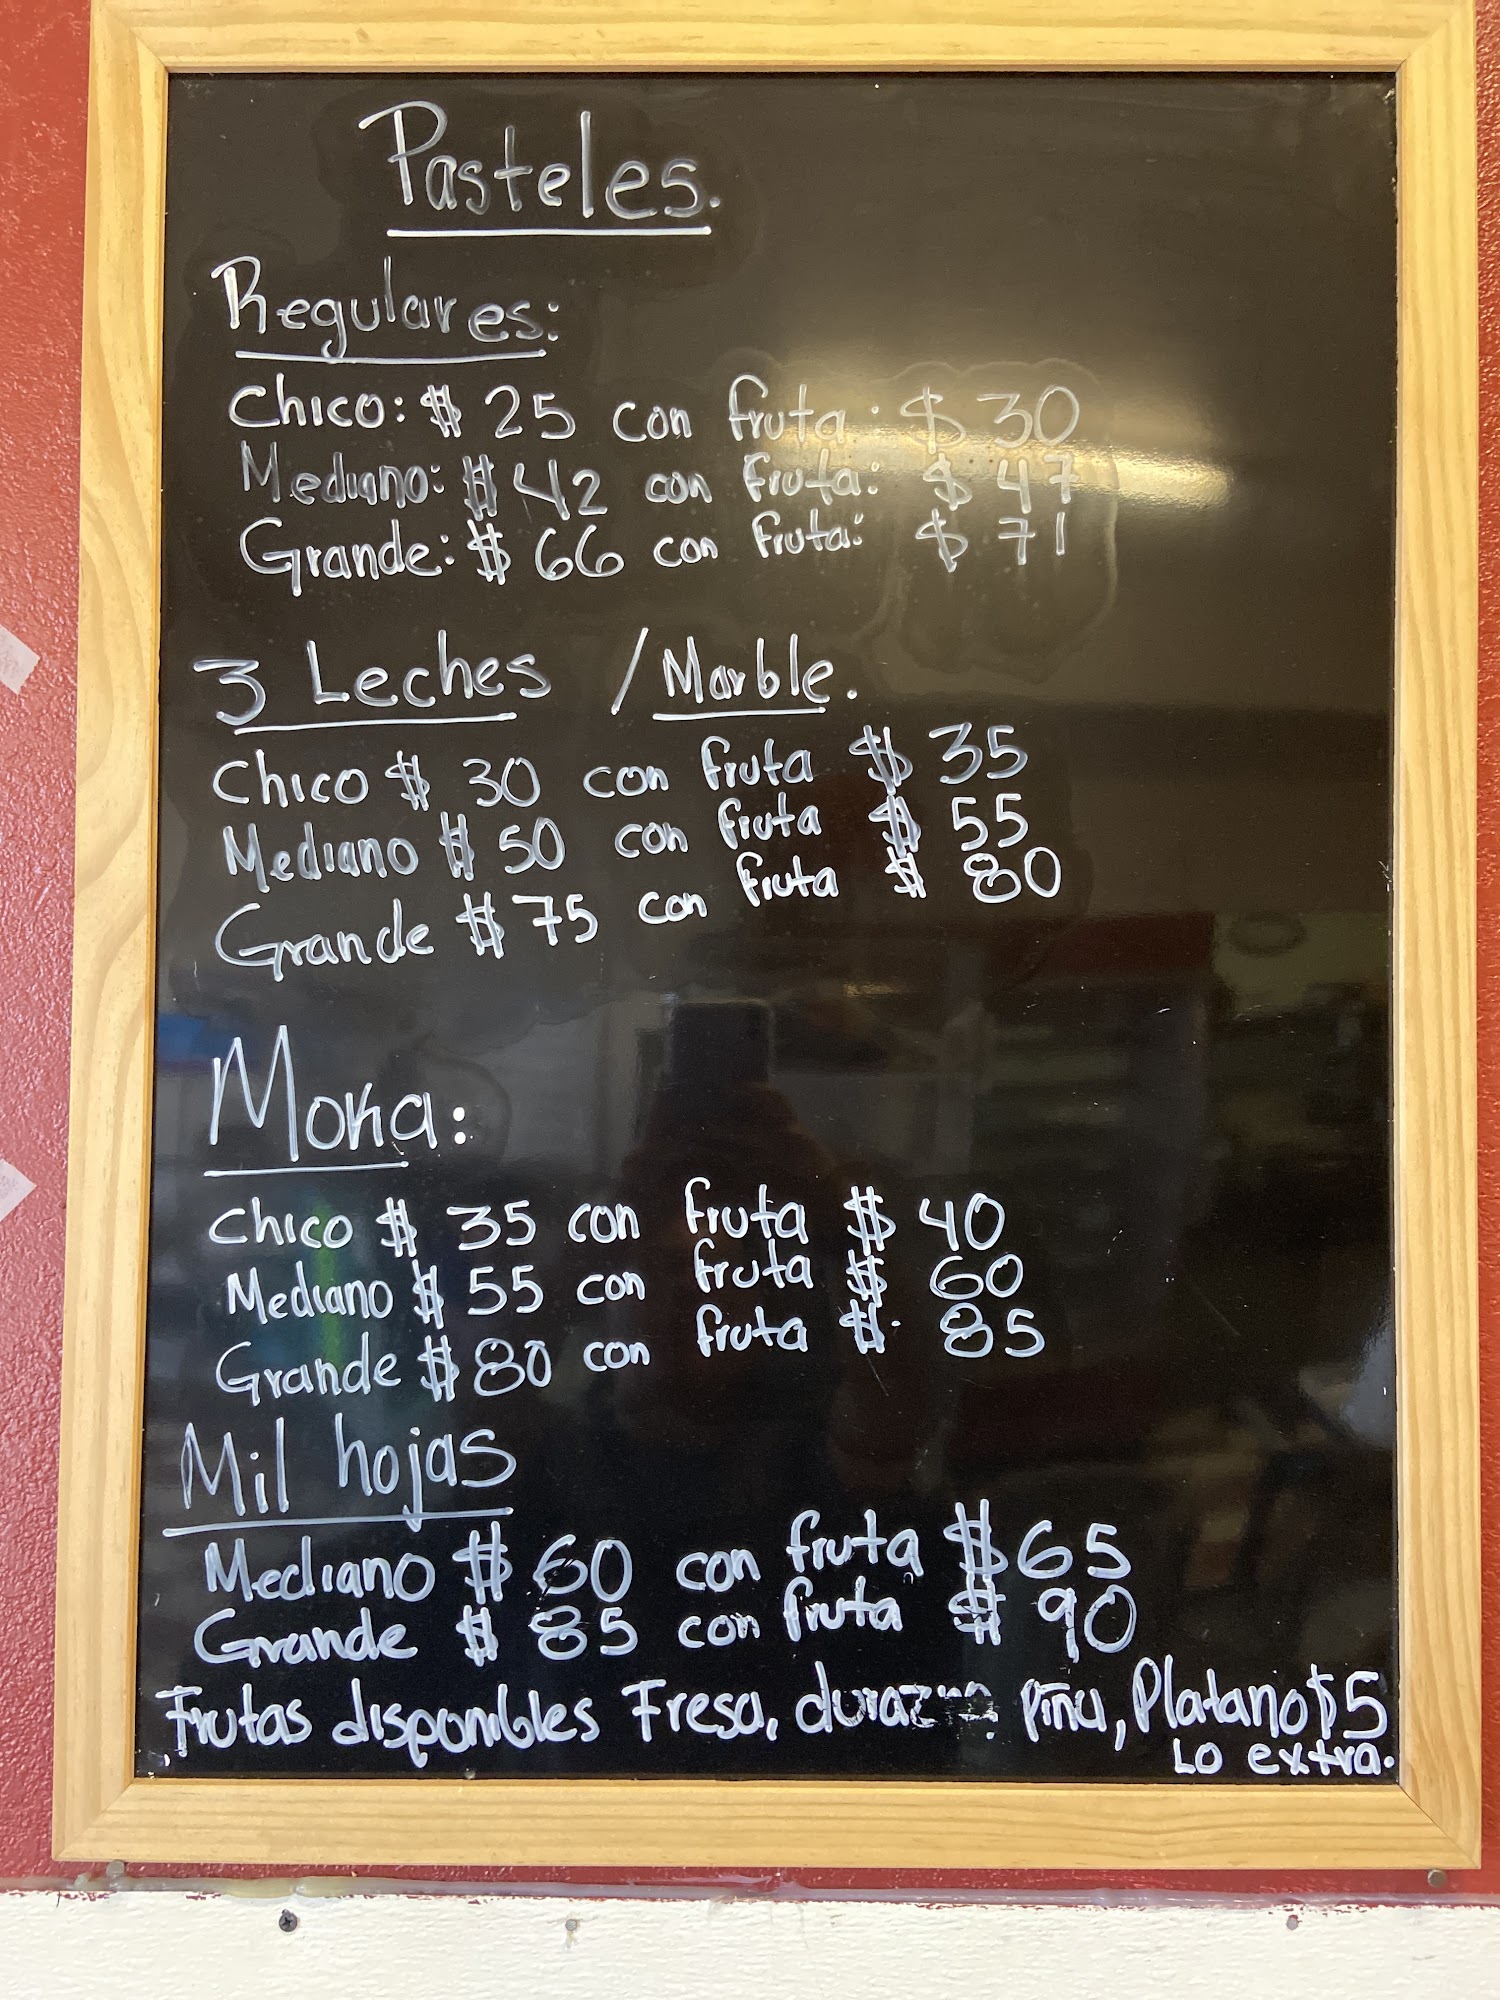 Pasteles.
Regulares:
Chico: $ 25 con fruta: $ 30
Mediano: $ 42 con fruta: $ 47
Grande: $ 66 con fruta: $ 71
3 Leches / Marble.
Chico $ 30 con fruta $ 35
Mediano $ 50 con fruta $ 55
Grande $ 75 con fruta $ 80
Moka:
Chico $ 35 con fruta $ 40
Mediano $ 55 con fruta $ 60
Grande $ 80 con fruta $ 85
Mil hojas
Mediano $ 60 con fruta $ 65
Grande $ 85 con fruta $ 90
Frutas disponibles Fresa, Piña, Platano $5
Lo extra.